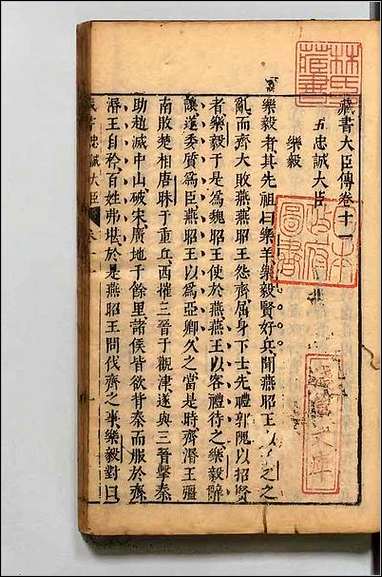 林氏藏書
藏書大臣傳卷十一
日本政府圖書
淺草文庫
五忠誠大臣
樂毅
樂毅者其先祖曰樂羊樂毅賢好兵聞燕昭王以之之
亂而齊大敗燕燕昭王怨齊屈身下士先禮郭隗以招賢
者樂毅于是為魏昭王使於燕燕王以客禮待之樂毅辭
讓遂委質為臣燕昭王以為亞卿久之當是時齊湣王彊
南敗楚相唐昧于重丘西摧三晉于觀津遂與三晉擊秦
助趙滅中山破宋廣地千餘里諸侯皆欲背秦而服於齊
湣王自矜百姓弗堪於是燕昭王問伐齊之事樂毅對曰
藏書忠誠大臣 卷十一 一